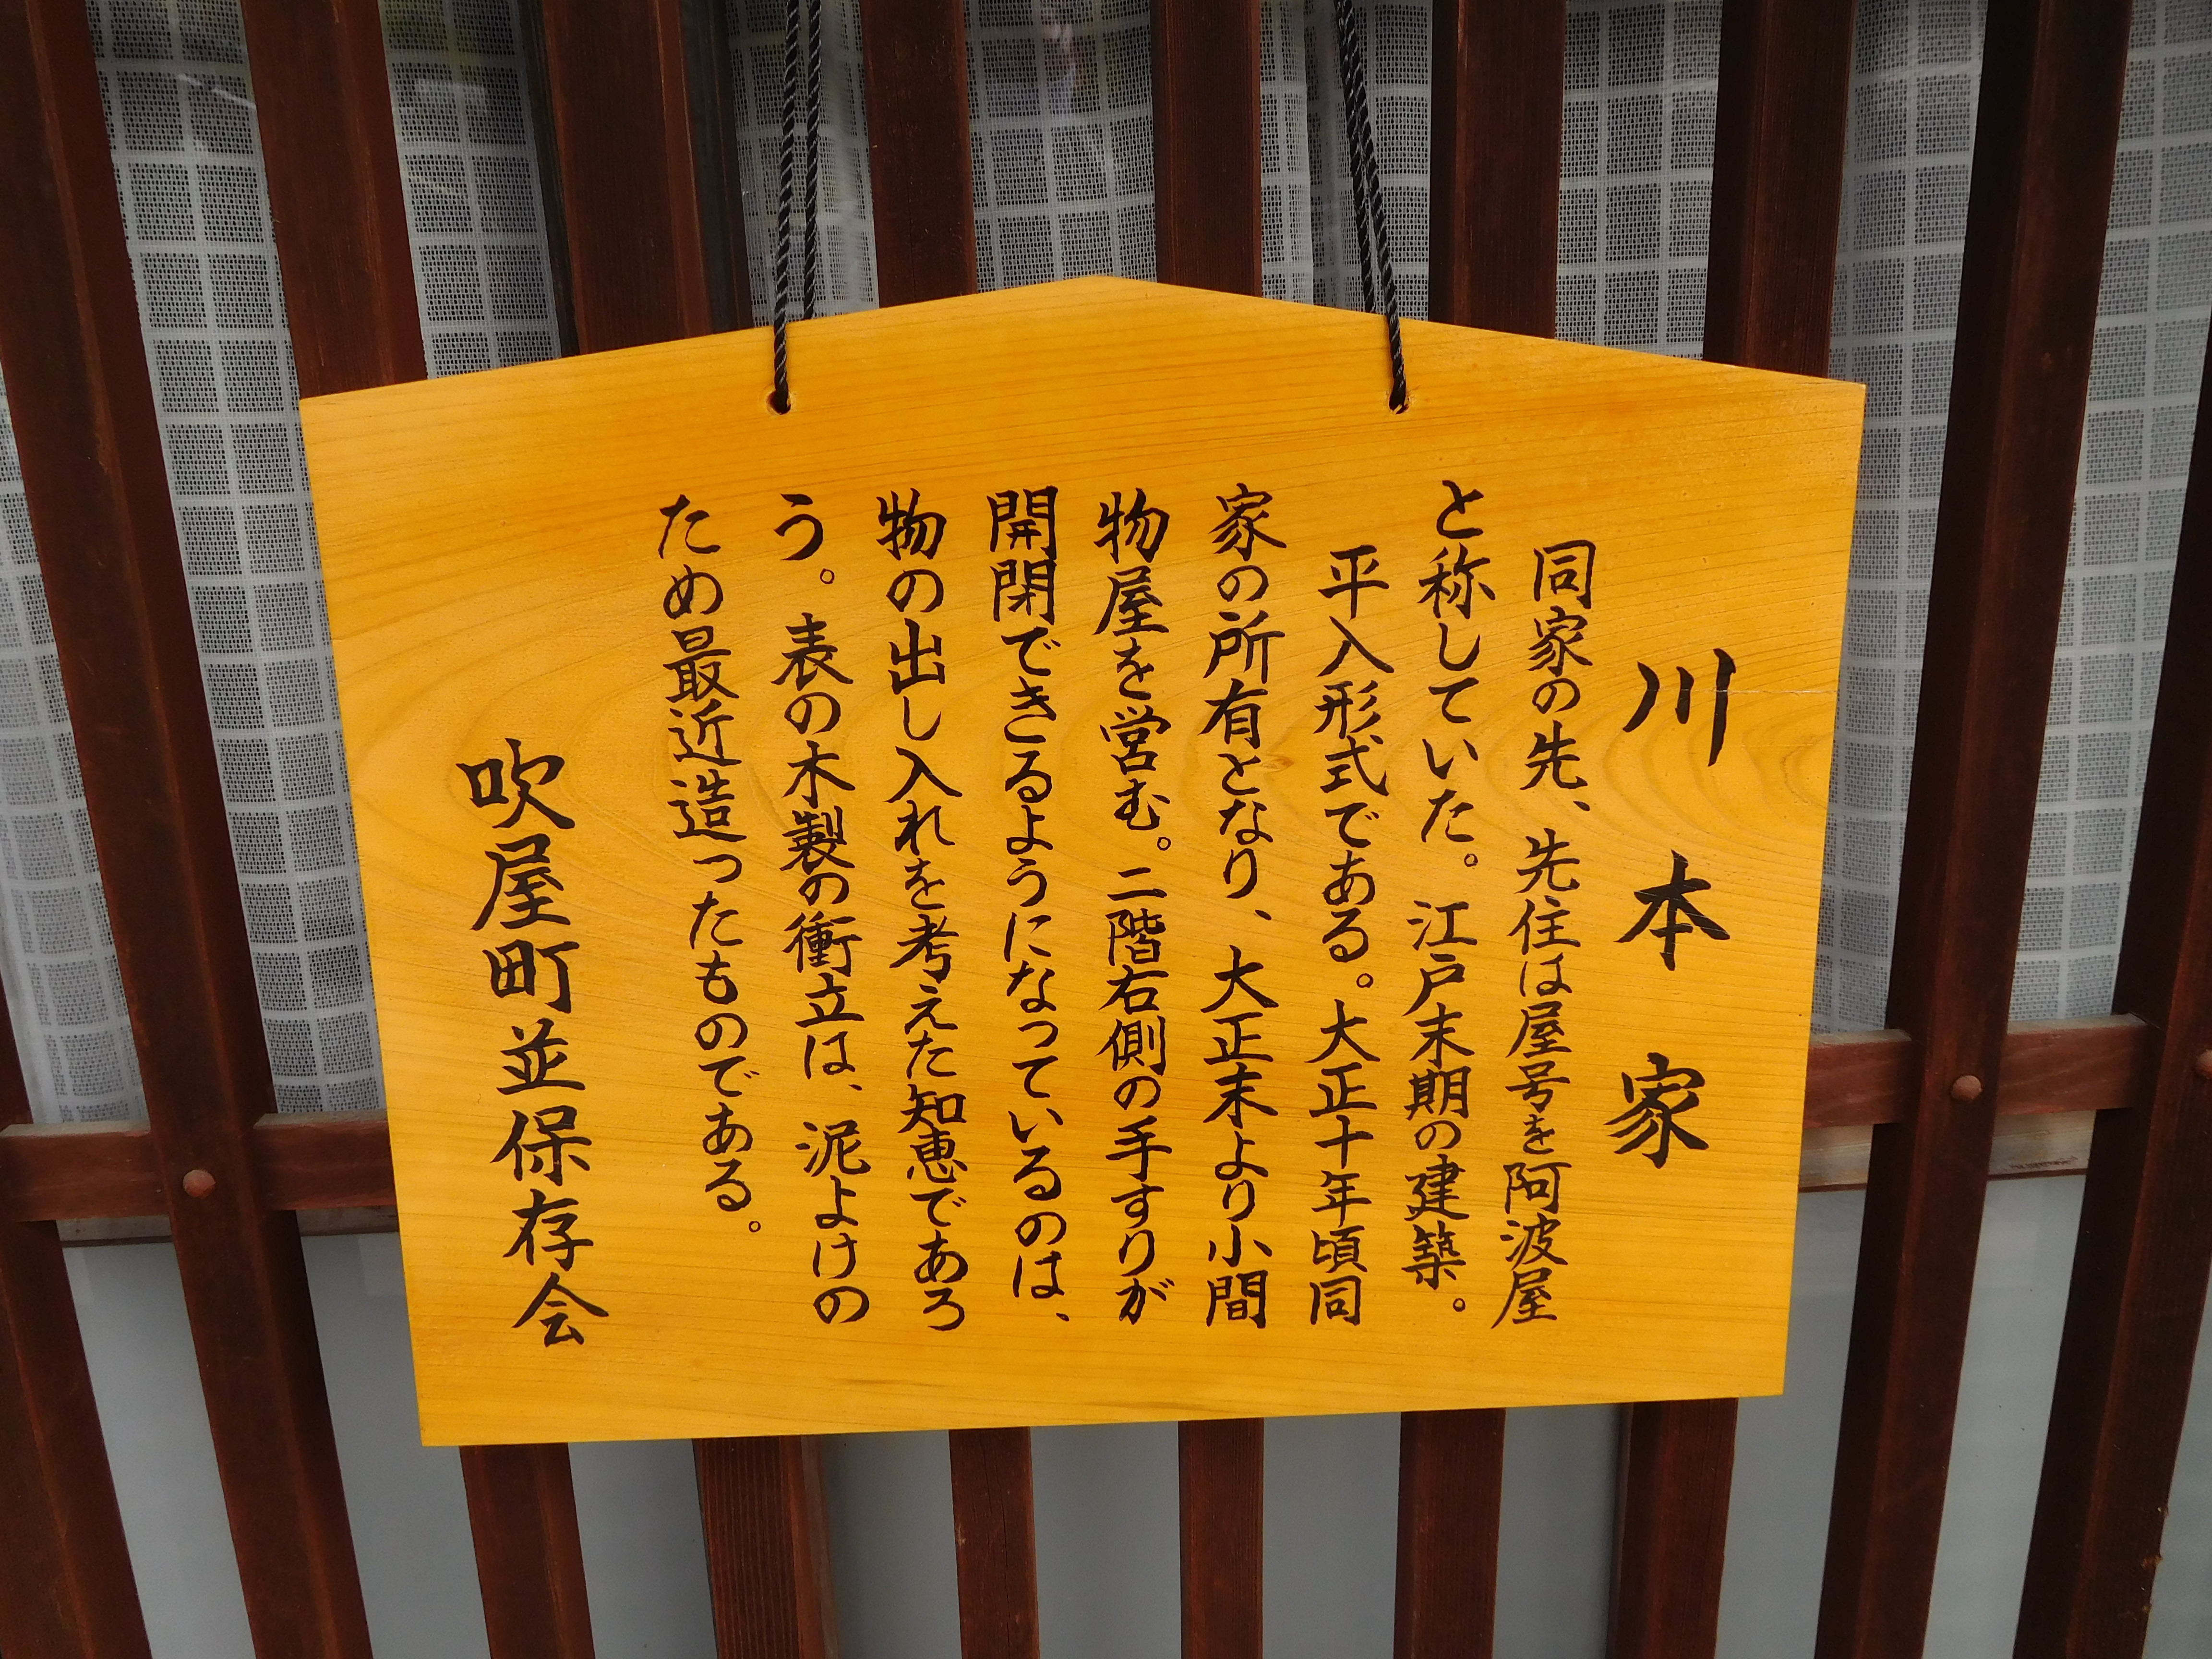 川本家
同家の先、先住は屋号を阿波屋
と称していた。江戸末期の建築。
平入形式である。大正十年頃同
家の所有となり、大正末より小間
物屋を営む。二階右側の手すりが
開閉できるようになっているのは、
物の出し入れを考えた知恵であろ
う。表の木製の衝立は、泥よけの
ため最近造ったものである。
吹屋町並保存会